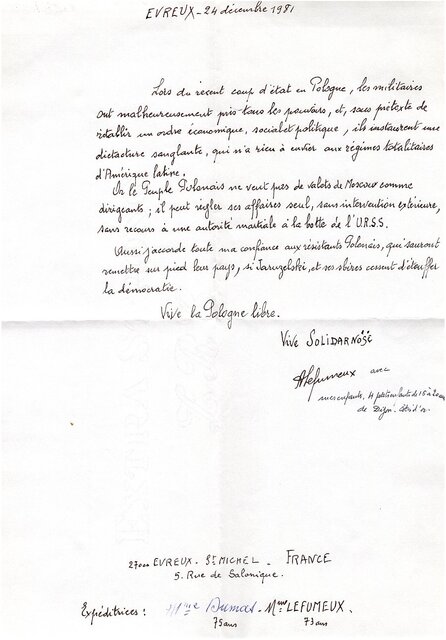 EVREUX - 24 décembre 1981
Lors du récent coup d'état en Pologne, les militaires
ont malheureusement pris tous les pouvoirs, et, sous prétexte de
rétablir un ordre économique, social et politique, ils instaurent une
dictature sanglante, qui n'a rien à envier aux régimes totalitaires
d'Amérique latine.
Or le Peuple Polonais ne veut pas de valets de Moscou comme
dirigeants ; il peut régler ses affaires seul, sans intervention extérieure,
sans recours à une autorité martiale à la botte de l'U.R.S.S.
Aussi j'accorde toute ma confiance aux résistants Polonais, qui sauront
remettre sur pied leur pays, si Jaruzelski, et ses sbires cessent d'étouffer
la démocratie.
Vive la Pologne libre.
Vive SOLIDARNOŚĆ
ALefumeux avec
mes enfants, 4 petits enfants de 15 à 20 ans
de Côte d'or.
27000 EVREUX - St MICHEL - FRANCE
5. Rue de Salonique.
Expéditrices : Mme Dumas - Mme LEFUMEUX.
75 ans 73 ans